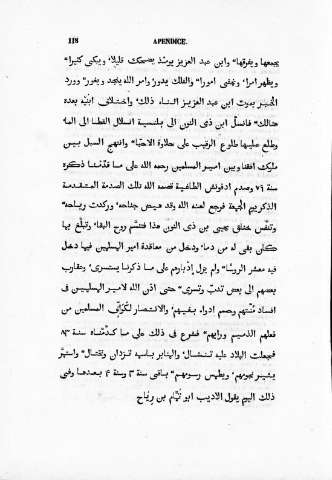 118 APENDICE.
يجمعها ويفرقها" وابن عبد العزيز يومئذ يضحك قليلا" ويبكى كثيرا"
ويظهر امرا" ويخفى امورا" والفلك يدور" وامر الله ينجد ويغور" وورد
الخبر بموت ابن عبد العزيز اثناء ذلك" واختلاف ابنيه بعده
هنالك" فانسل ابن ذى النون الى بلنسية انسلال القطا الى الما
وطلع عليها طلوع الرقيب على خلوة الاحبا" وانتهج السبل بين
ملوك افقنا وبين امير المسلمين رحمه الله على ما قدمنا ذكره
سنة ٧٩ وصدم اذفونش الطاغية قصمه الله تلك الصدمة المتقدمة
الذكر يوم الجمعة فرجع لعنه الله وقد هيض جناحه" وركدت رياحه"
وتنفس خناق يحيى بن ذى النون هذا فتنسم روح البقا" وتبلغ بها
كان بقى له من دما" ودخل من معاقدة امير المسلمين فيها دخل
فيه معشر الروسا" ولم يزل ادبارهم على ما ذكرنا يستسرى" وعقارب
بعضهم الى بعض تدب وتسرى" حتى اذن الله لامير المسلمين فى
افساد سعيهم وحسم ادواء بغيهم" والانتصار لكواف المسلمين من
فعلهم الذميم ورايهم" فشرع فى ذلك على ما قدمناه سنة ٨٣
فجعلت البلاد عليه تنثال" والمنابر باسمه تزدان وتختال" واستمر
ينثر نجومهم" ويطمس رسومهم" باقى سنة ٣ وسنة ٤ بعدها وفى
ذلك اليم يقول الاديب ابو تمام بن رياح